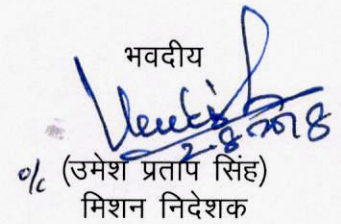 भवदीय
2-8-2018
o/c (उमेश प्रताप सिंह)
मिशन निदेशक